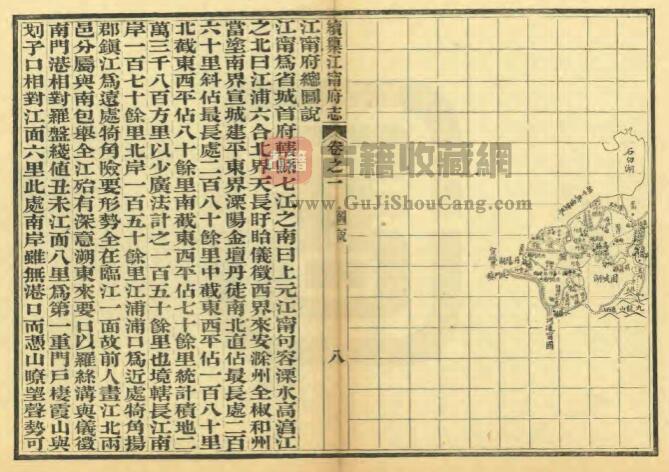 石臼湖
固城湖
續纂江甯府志
卷之二
圖說
八
江甯府總圖說
江甯為省城首府轄縣七江之南曰上元江甯句容溧水高淳江
之北曰江浦六合北界天長盱眙儀徵西界來安滁州全椒和州
當塗南界宣城建平東界溧陽金壇丹徒南北直佔最長處二百
六十里斜佔最長處二百八十餘里中截東西平佔一百八十里
北截東西平佔八十餘里南截東西平佔七十餘里統計積地二
萬三千八百方里以少廣法計之一百五十餘里也境轄長江南
岸一百七十餘里北岸一百五十餘里江浦浦口為近處犄角揚
郡鎮江為遠處犄角險要形勢全在臨江一面故前人畫江北兩
邑分屬與南包舉全江殆有深意溯東來要口以羅絲溝與儀徵
南門港相對羅盤綫值丑未江面八里為第一重門戶棲霞山與
划子口相對江面六里此處南岸雖無港口而憑山瞭望聲勢可
古籍收藏网
www.GuJiShouCang.com